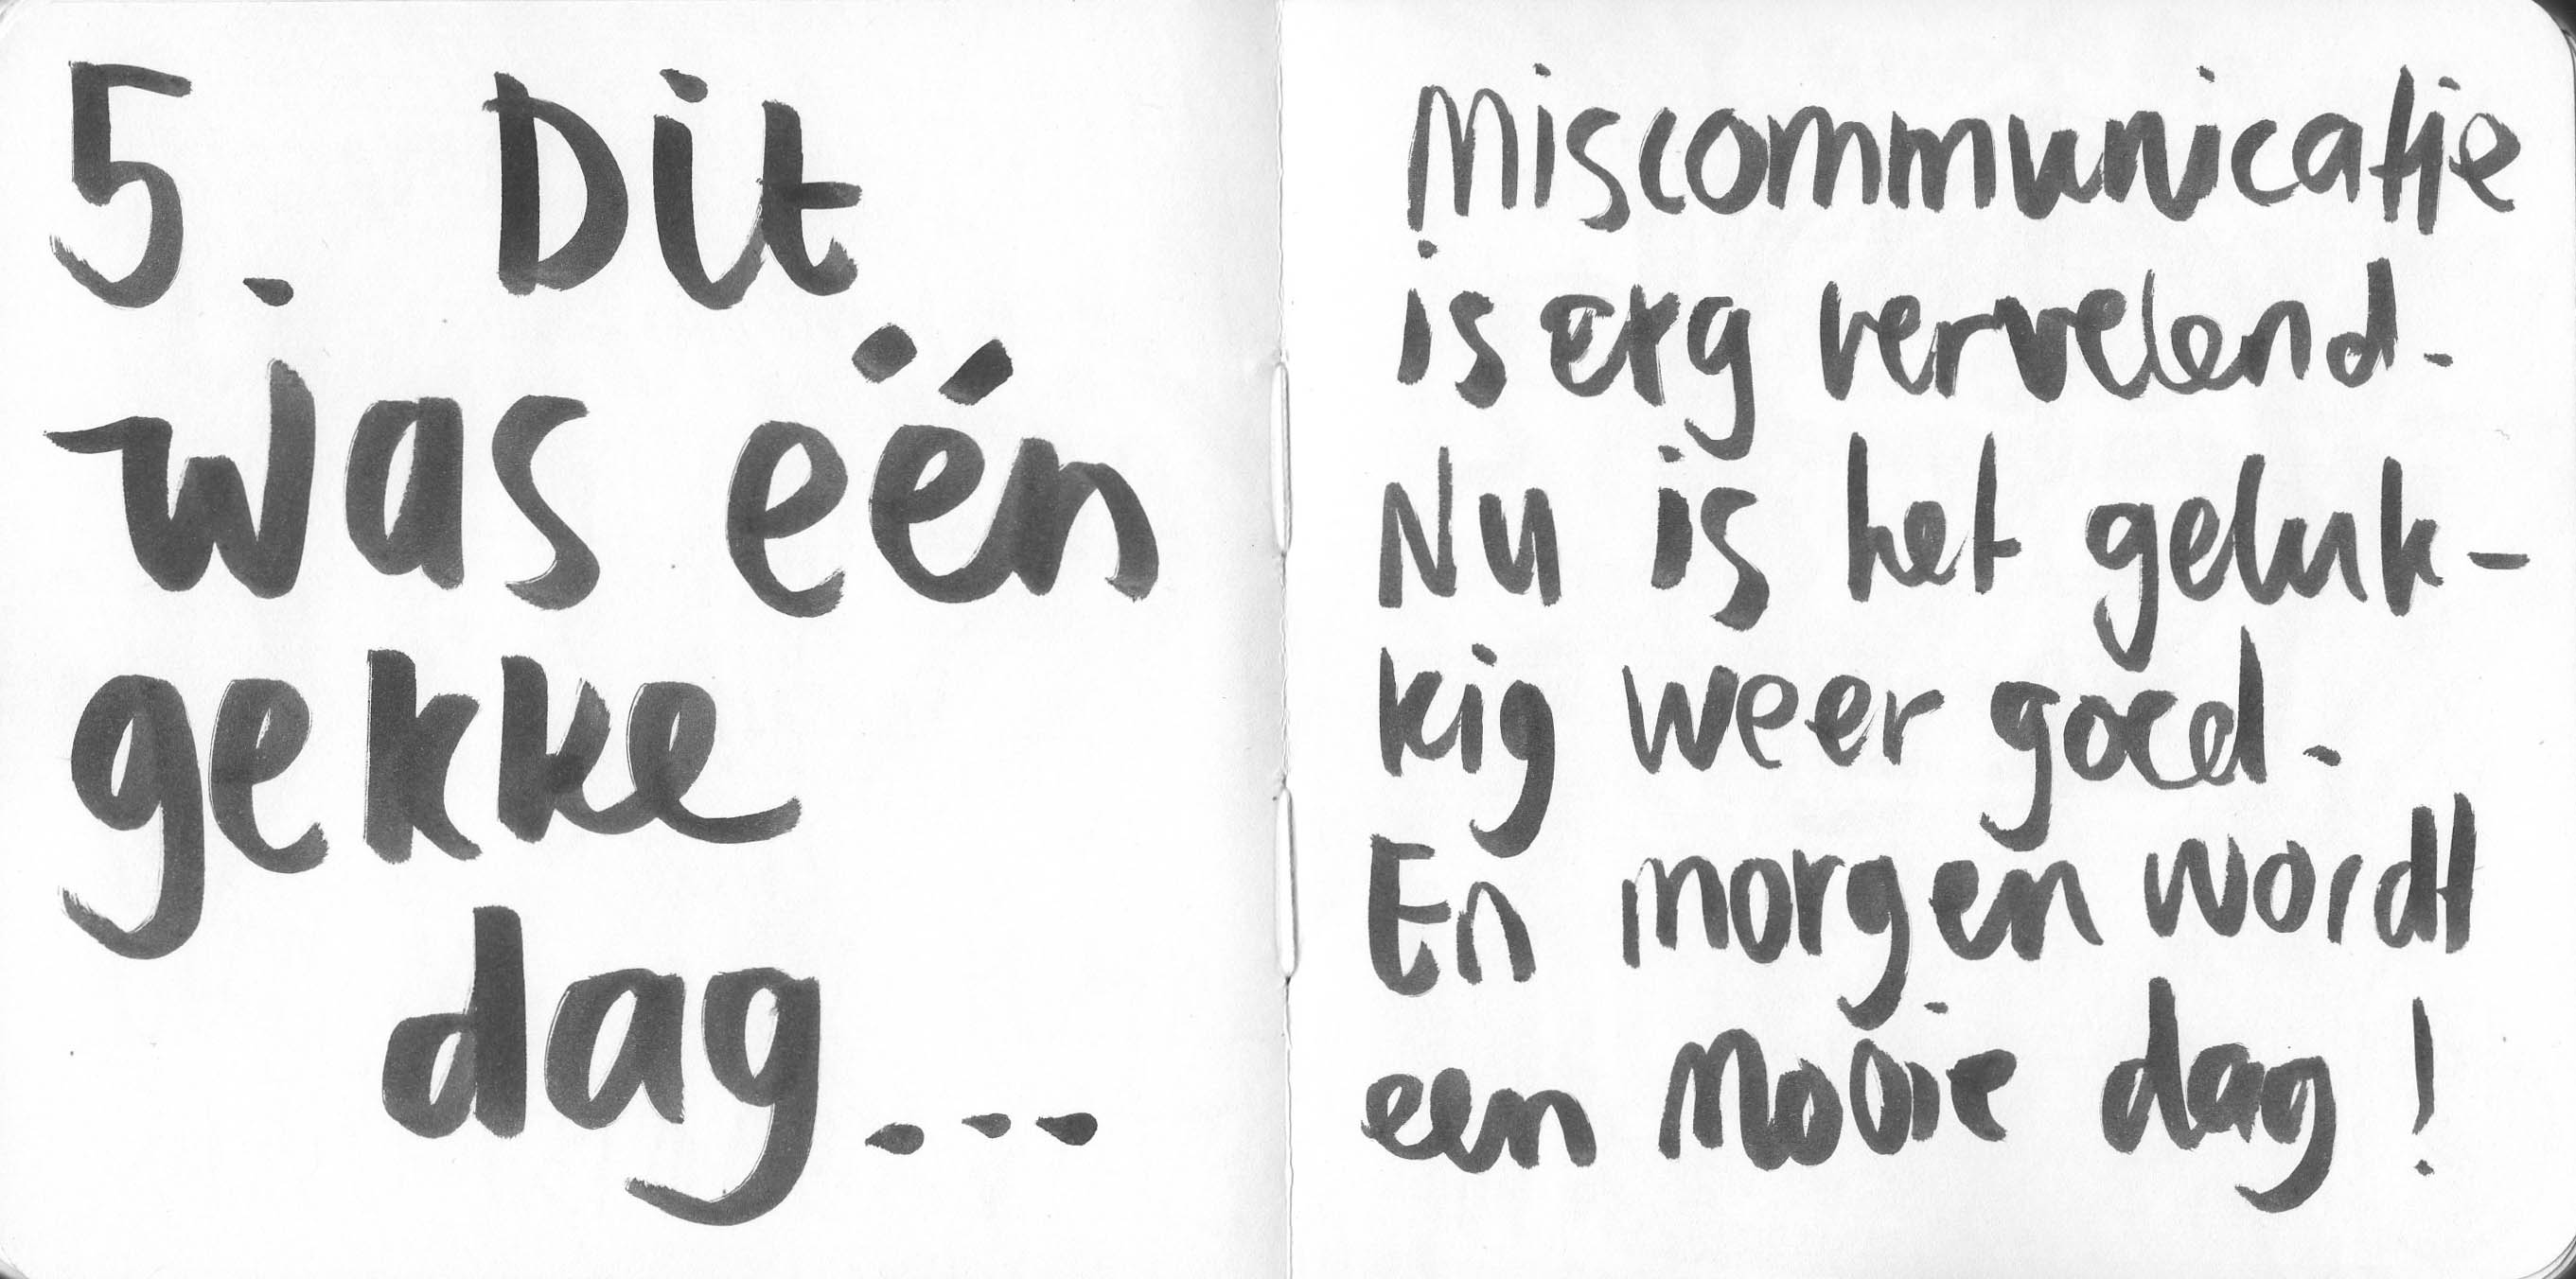 5. Dit
was één
gekke
dag...
Miscommunicatie
is erg vervelend.
Nu is het geluk-
kig weer goed.
En morgen wordt
een mooie dag!